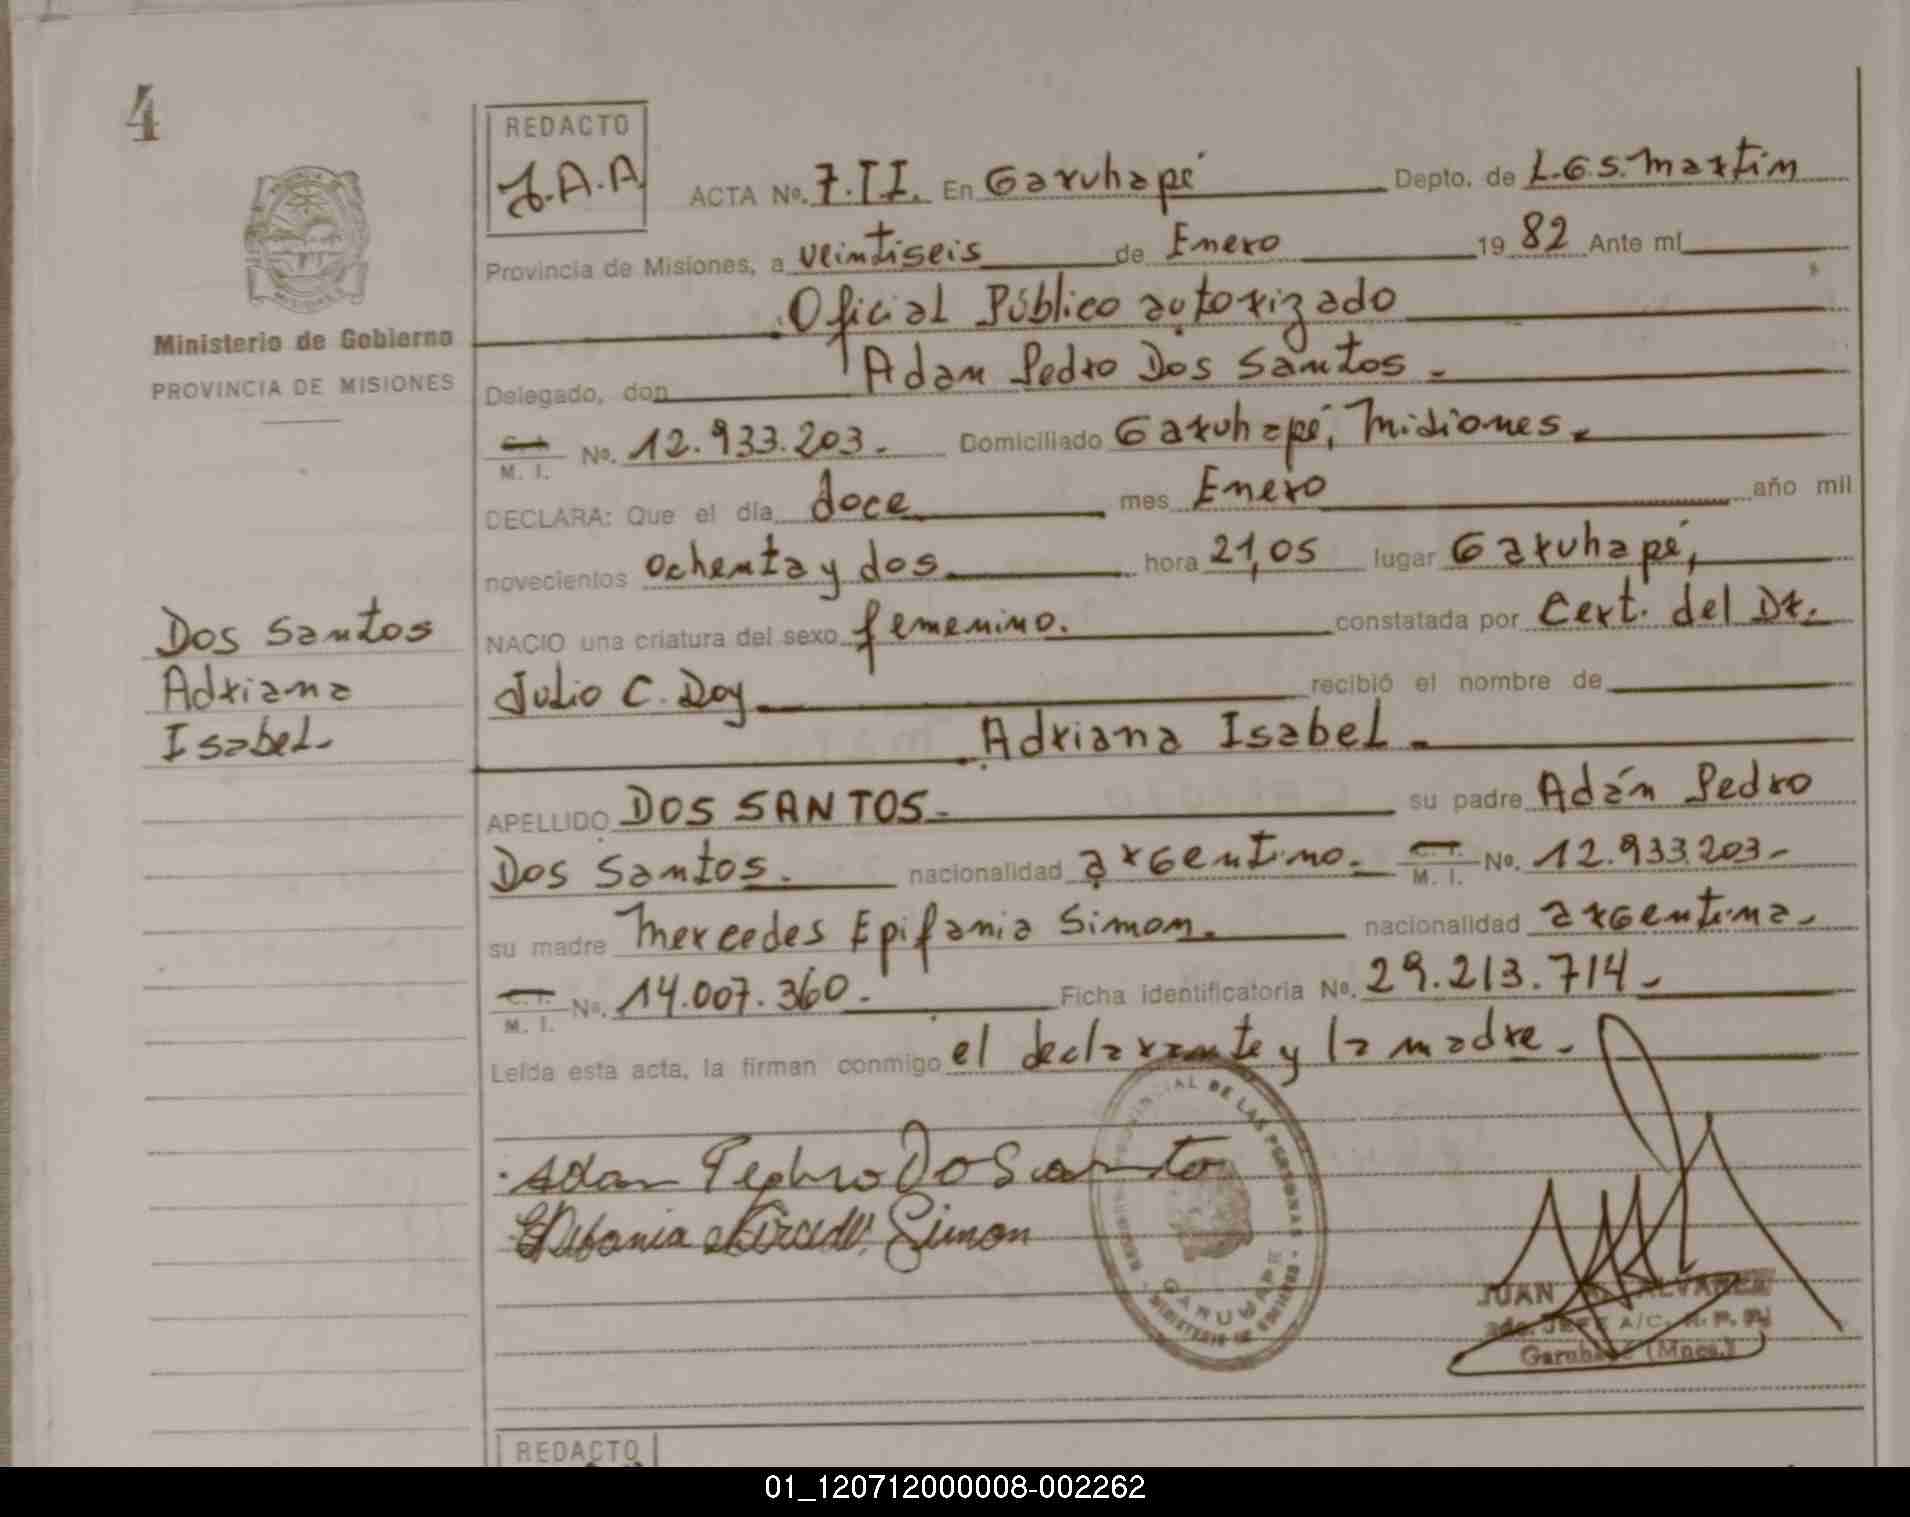 4
REDACTO
J.A.A
ACTA Nº. 7.II. En Garuhapé Depto. de L.G.S.Martin
Provincia de Misiones, a veintiseis de Enero 19 82 Ante mí
Oficial Público autorizado
Ministerio de Gobierno
PROVINCIA DE MISIONES
Delegado, don Adam Pedro Dos Santos.-
C.I. M. I. No. 12.933.203.- Domiciliado Garuhapé, Misiones.
DECLARA: Que el día doce mes Enero año mil
novecientos ochenta y dos hora 21,05 lugar Garuhapé,
NACIO una criatura del sexo femenino. constatada por Cert. del Dr.
Julio C. Doy recibió el nombre de
Adriana Isabel.
Dos Santos
Adriana
Isabel.-
APELLIDO DOS SANTOS.- su padre Adán Pedro
Dos Santos. nacionalidad argentino. C.I. M. I. No. 12.933.203-
su madre Mercedes Epifania Simon. nacionalidad argentina.
C.I. M. I. No. 14.007.360. Ficha identificatoria No. 29.213.714-
Leída esta acta, la firman conmigo el declarante y la madre.-
Adan Pephro Do Santo
Epifania Simon
DE LAS PERSONAS
GARUHAPE
JUAN ALVAREZ
A/C. R. P. P.
Garuhapé (Mnes.)
REDACTO
01_120712000008-002262